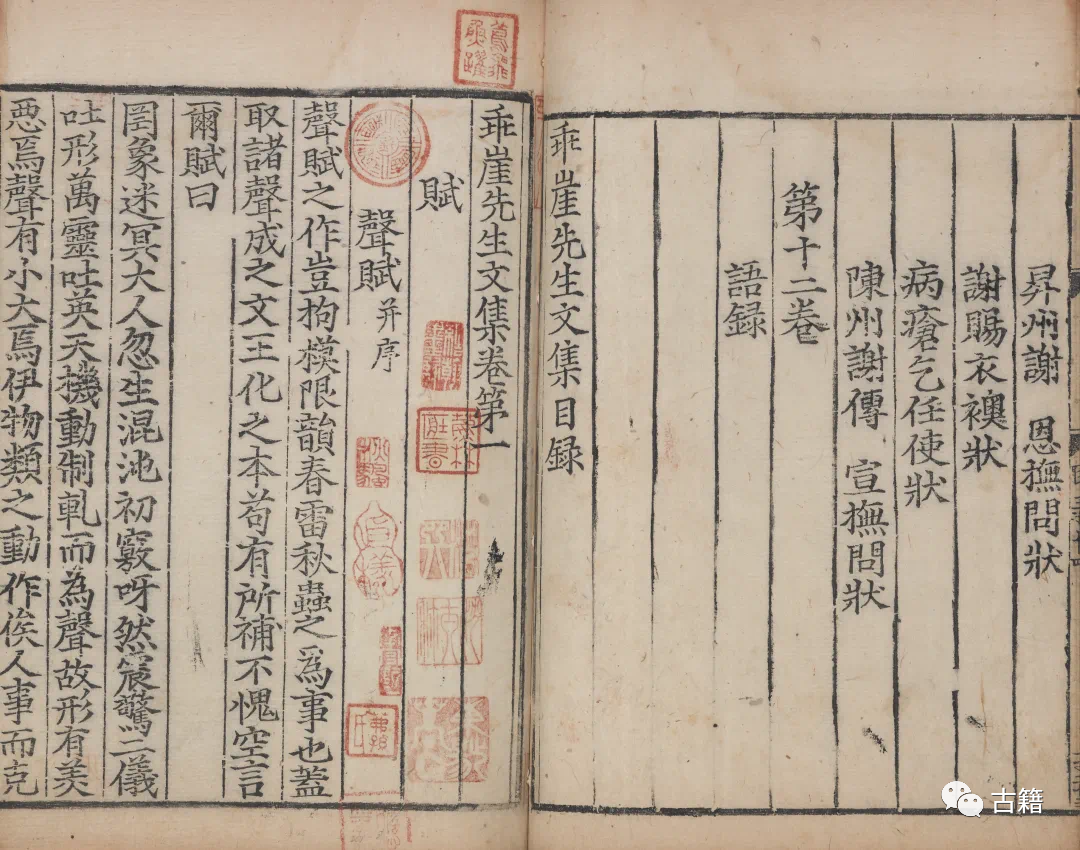 昇州謝　恩撫問狀
謝賜衣襖狀
病瘡乞任使狀
陳州謝傳　宣撫問狀
第十二卷
語録
乖崖先生文集目録
乖崖先生文集卷第一
賦
聲賦并序
聲賦之作豈拘模限韻春雷秋蟲之爲事也蓋
取諸聲成之文王化之本苟有所補不愧空言
爾賦曰
罔象迷冥大人忽生混沌初竅呀然震驚二儀
吐形萬靈吐英天機動制軋而為聲故形有美
惡焉聲有小大焉伊物類之動作俟人事而克
鳶飛魚躍
古籍